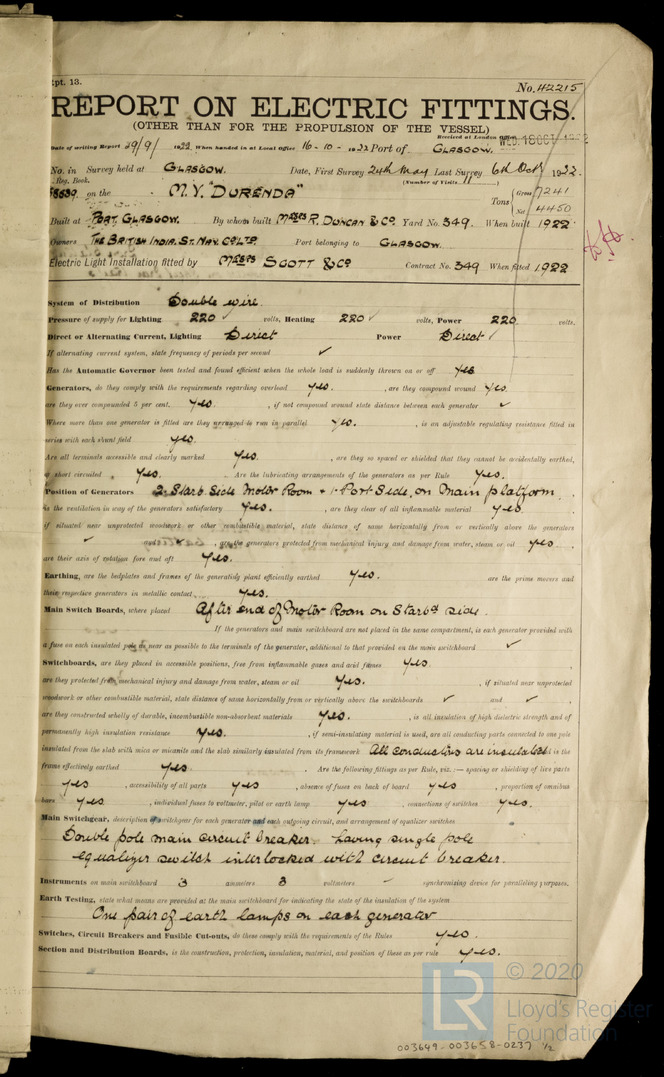 Rpt. 13.
No. 42215
REPORT ON ELECTRIC FITTINGS.
(OTHER THAN FOR THE PROPULSION OF THE VESSEL)
Received at London Office WED. 18 OCT 1922
Date of writing Report 29/9/ 1922 When handed in at Local Office 16-10-1922 Port of GLASGOW.
No. in Survey held at GLASGOW. Date, First Survey 24th May Last Survey 6th Oct 1922.
Reg. Book. (Number of Visits)
58639 on the M.V. "DURENDA" Tons { Gross 7241
Net 4450
Built at PORT GLASGOW. By whom built MESSRS R. DUNCAN & CO. Yard No. 349. When built 1922
Owners THE BRITISH INDIA. ST. NAV. CO LTD. Port belonging to GLASGOW.
Electric Light Installation fitted by MESSRS SCOTT & CO Contract No. 349 When fitted 1922
System of Distribution Double wire.
Pressure of supply for Lighting 220 ✓ volts, Heating 220 ✓ volts, Power 220 volts.
Direct or Alternating Current, Lighting Direct Power Direct ✓
If alternating current system, state frequency of periods per second ✓
Has the Automatic Governor been tested and found efficient when the whole load is suddenly thrown on or off Yes
Generators, do they comply with the requirements regarding overload Yes. , are they compound wound Yes.
are they over compounded 5 per cent. Yes. , if not compound wound state distance between each generator ✓
Where more than one generator is fitted are they arranged to run in parallel Yes. , is an adjustable regulating resistance fitted in
series with each shunt field Yes.
Are all terminals accessible and clearly marked Yes. , are they so spaced or shielded that they cannot be accidentally earthed,
or short circuited Yes. Are the lubricating arrangements of the generators as per Rule Yes.
Position of Generators 2. Starb. Side Motor Room + 1. Port Side, on Main platform.
is the ventilation in way of the generators satisfactory Yes. , are they clear of all inflammable material Yes.
if situated near unprotected woodwork or other combustible material, state distance of same horizontally from or vertically above the generators
✓ and ✓ , are the generators protected from mechanical injury and damage from water, steam or oil Yes.
are their axis of rotation fore and aft Yes.
Earthing, are the bedplates and frames of the generating plant efficiently earthed Yes. are the prime movers and
their respective generators in metallic contact Yes.
Main Switch Boards, where placed After end of Motor Room on Starbd side.
If the generators and main switchboard are not placed in the same compartment, is each generator provided with
a fuse on each insulated pole as near as possible to the terminals of the generator, additional to that provided on the main switchboard ✓
Switchboards, are they placed in accessible positions, free from inflammable gases and acid fumes Yes.
are they protected from mechanical injury and damage from water, steam or oil Yes. , if situated near unprotected
woodwork or other combustible material, state distance of same horizontally from or vertically above the switchboards ✓ and ✓
are they constructed wholly of durable, incombustible non-absorbent materials Yes. , is all insulation of high dielectric strength and of
permanently high insulation resistance Yes. , if semi-insulating material is used, are all conducting parts connected to one pole
insulated from the slab with mica or micanite and the slab similarly insulated from its framework All conductors are insulated is the
frame effectively earthed Yes. . Are the following fittings as per Rule, viz.:— spacing or shielding of live parts
Yes , accessibility of all parts Yes , absence of fuses on back of board Yes , proportion of omnibus
bars Yes , individual fuses to voltmeter, pilot or earth lamp Yes , connections of switches Yes.
Main Switchgear, description of switchgear for each generator and each outgoing circuit, and arrangement of equalizer switches
Double pole main circuit breaker having single pole
equalizer switch interlocked with circuit breaker.
Instruments on main switchboard 3 ammeters 3 voltmeters – synchronizing device for paralleling purposes.
Earth Testing, state what means are provided at the main switchboard for indicating the state of the insulation of the system
One pair of earth lamps on each generator
Switches, Circuit Breakers and Fusible Cut-outs, do these comply with the requirements of the Rules Yes.
Section and Distribution Boards, is the construction, protection, insulation, material, and position of these as per rule Yes.
© 2020
LR
Lloyd's Register
Foundation
003649-003658-0237 1/2